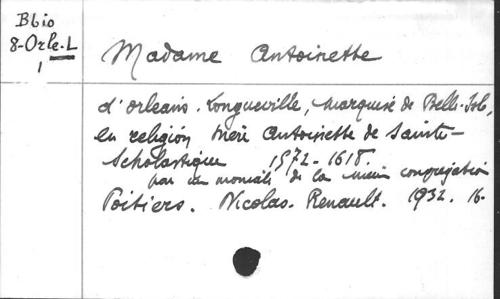 Bbio
8-Orle-L
1
Madame Antoinette
d'orleans. Longueville, marquise de Belle-Isle,
en religión Mère Antoinette de Sainte-
Scholastique 1572-1618.
par un moniale de la même congrejation
Poitiers. Nicolas-Renault. 1932. 16.